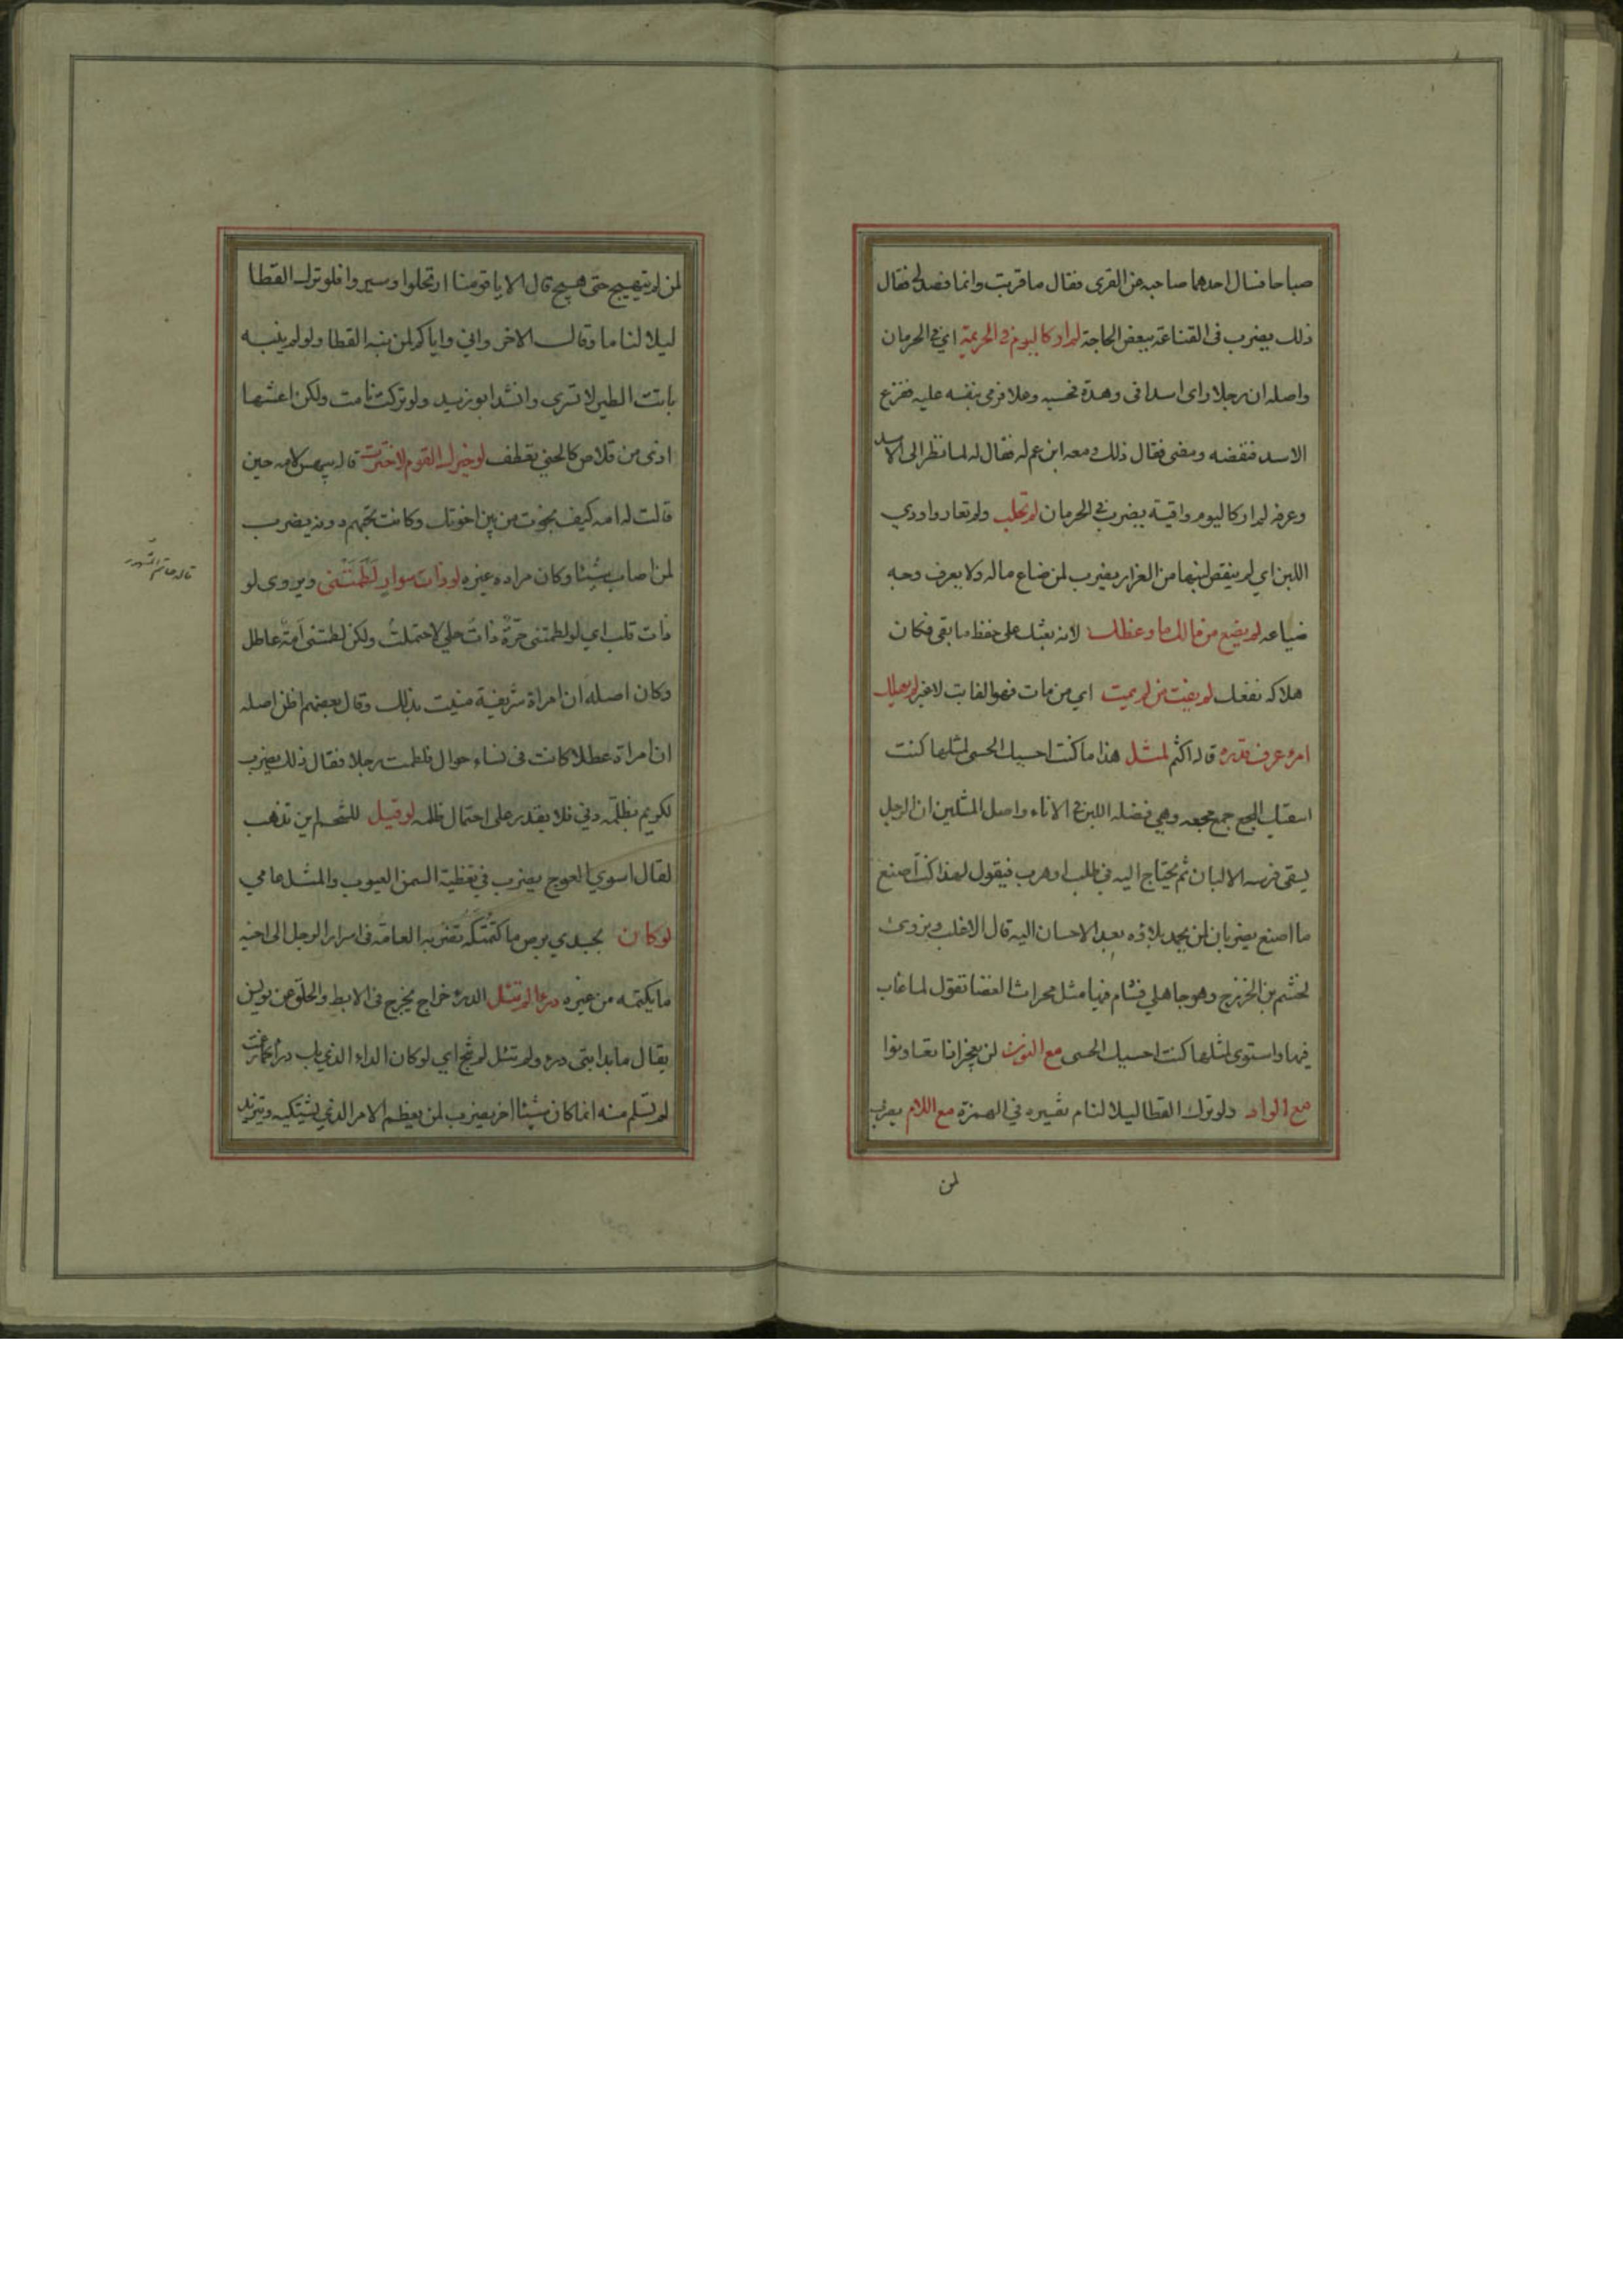 صباحا فسال احدهما صاحبه عن القرى فقال ما قريت وانما فصد لي فقال
ذلك يضرب في القناعة ببعض الحاجة لم ار كاليوم في الحريمة اي في الحرمان
واصله ان رجلا راى اسدا في وهدة فحسبه وعلا فرمى بنفسه عليه ففزع
الاسد فنفضه ومضى فقال ذلك ومعه ابن عم له فقال له لما نظر الى الاسد
وعرفه لم ار كاليوم واقية يضرب في الحرمان لم تحلب ولم تغار واودي
اللبن اي لم ينقص لبنها من الغرار يضرب لمن ضاع ماله ولا يعرف وجه
ضياعه لم يضع من مالك ما وعظك لانه يعثك على حفظ ما بقي فكان
هلاكه نفعك لم يفت من لم يمت اي من مات فهو الفايت لا غير لم يهلك
امرء عرف قدره قاله اكثم لمثل هذا ما كنت احسيك الحسى لمثلها كنت
اسقيك المجع جمع مجعه وهي فضله اللبن في الاناء واصل المثلين ان الرجل
يسقي فرسه الالبان ثم يحتاج اليه في طلب او هرب فيقول لهذا كنت اصنع
ما اصنع يضربان لمن يحمد بلاؤه بعد الاحسان اليه قال الاغلب ويروى
لجشم بن الخزرج وهو جاهلي فشام فيها مثل محراث الغضا تقول لما غاب
فيها واستوى لمثلها كنت احسيك الحسى مع النون لن يعجز انا تعاونوا
مع الواو ولو ترك القطا ليلا لنام تفسيره في الهمزة مع اللام يضرب
لمن
لمن لم يتهيج حتى هيج قال الا يا قومنا ارتحلوا وسيروا فلو ترك القطا
ليلا لناما وقالت الاخر واني واياكم لمن ينبه القطا ولو لم ينبه
باتت الطير لا تسري وانشد ابو زيد ولو تركت نامت ولكن اعشها
اذى من قلاص كالحني تعطف لو خيرك القوم لاخترت قاله بيهس لامه حين
قالت له امه كيف نجوت من بين اخوتك وكانت تحبهم دونه يضرب
لمن اصاب شيئا وكان مراده غيره لو ذات سوار لَطَمَتْني ويروى لو
قاله حاتم
ذات قلب اي لو لطمتني حرّة ذات حلي لاحتملت ولكن لطمتني اَمة عاطل
وكان اصله ان امراة شريفية منيت بذلك وقال بعضهم اظن اصله
ان امراة عطلا كانت في نساء حوال فلطمت رجلا فقال ذلك يضرب
لكريم يظلمه دني فلا يقدر على احتمال ظلمه لو قيل للشحم اين تذهب
لقال اسوي العوج يضرب في تغطية السمن العيوب والمثل عامي
لو كان بجسدي برص ما كتمتكه تضربه العامة في اسرار الرجل الى اخيه
ما يكتمه من غيره درءا لم تئل الدرء خراج يخرج في الابط والحلق عن
يقال ما بدابتي درء ولم تئل لم تنج اي لو كان الداء الذي بك درءا
لم تسلم منه انما كان شيئا اخر يضرب لمن يعظم الامر الذي يشتكيه ويتزيد